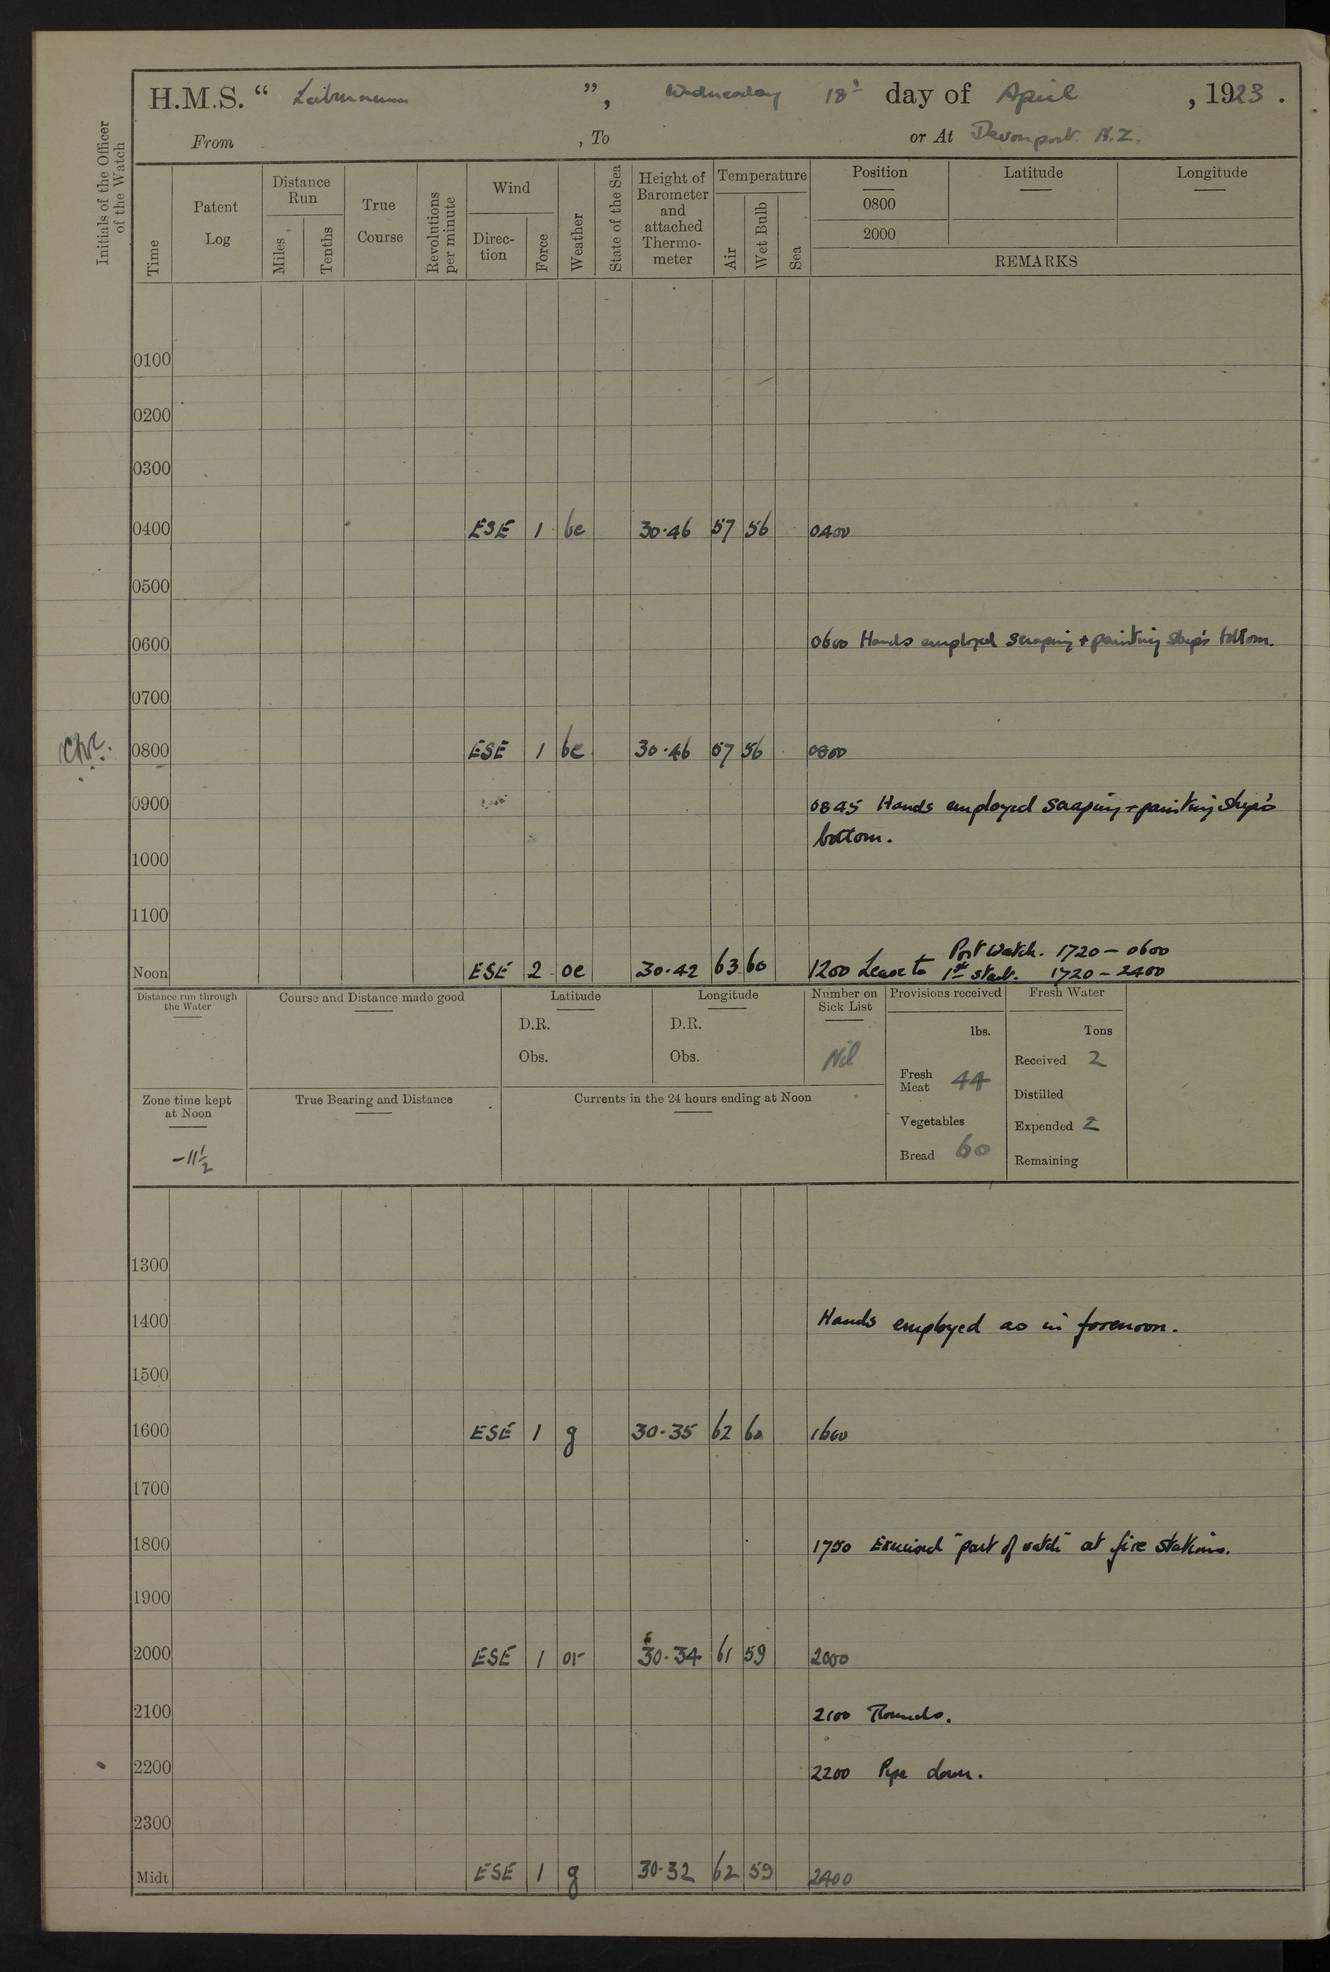 H.M.S. “ Laburnum ”, Wednesday 18th day of April , 1923 .
From , To or At Devonport. N.Z.
Initials of the Officer of the Watch
Time
Patent Log
Distance Run
Miles
Tenths
True Course
Revolutions per minute
Wind
Direc-tion
Force
Weather
State of the Sea
Height of Barometer and attached Thermo-meter
Temperature
Air
Wet Bulb
Sea
Position Latitude Longitude
0800
2000
REMARKS
0100
0200
0300
0400 ESE 1 bc 30.46 57 56 0400
0500
0600 0600 Hands employed scraping + painting ship's bottom.
0700
0800 ESE 1 bc 30.46 57 56 0800
0900 0845 Hands employed scraping + painting ship's
bottom.
1000
1100
Port Watch. 1720 – 0600
Noon ESE 2 oc 30.42 63 60 1200 Leave to 1st start. 1720 – 2400
Distance run through the Water
Course and Distance made good
Latitude
D.R.
Obs.
Longitude
D.R.
Obs.
Number on Sick List
Nil
Provisions received
lbs.
Fresh Meat 44
Vegetables
Bread 60
Fresh Water
Tons
Received 2
Distilled
Expended 2
Remaining
Zone time kept at Noon
-11½
True Bearing and Distance
Currents in the 24 hours ending at Noon
1300
1400 Hands employed as in forenoon.
1500
1600 ESE 1 g 30.35 62 60 1600
1700
1800 1750 Exercised "part of watch" at fire stations.
1900
2000 ESE 1 or 30.34 61 59 2000
2100 2100 Rounds.
2200 2200 Pipe down.
2300
Midt ESE 1 g 30.32 62 59 2400